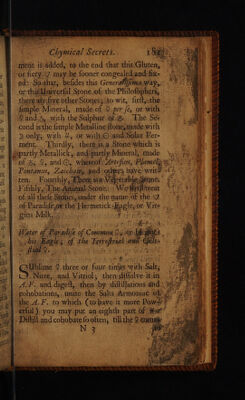 Chymical Secrets. 181
ment is added, to the end that this Gluten,
or fiery ☿ may be sooner congealed and fix-
ed: So that, besides this Generalissima way,
or the Universal Stone of the Philosophers,
there are five other Stones; to wit, first, the
simple Mineral, made of per se, or with
and with the Sulphur of The Se-
cond is the simple Metalline stone, made with
only, with or with ☉ and Solar Fer-
ment. Thirdly, there is a Stone which is
partly Metallick, and partly Mineral, made
of and ☉, whereof Artefius, Flamel,
Pontanus, Zachary, and others have writ-
ten. Fourthly, There is a Vegetable Stone.
Fifthly, The Animal Stone. We shall treat
of all these Stones, under the name of the
of Paradise, or the Hermetick Eagle, or Vir-
gins Milk.
Water of Paradise of Common or
his Eagle, of the Terrestrial and Cœle-
stial
Sublime three or four times with Salt,
Nitre, and Vitriol, then dissolve it in
A. F. and digest, then by distillations and
cohobations, unite the Salts Armoniac of
the A. F. to which (to have it more Pow-
erful) you may put an eighth part of
Distill and cohobate so often, till the comes
N 3